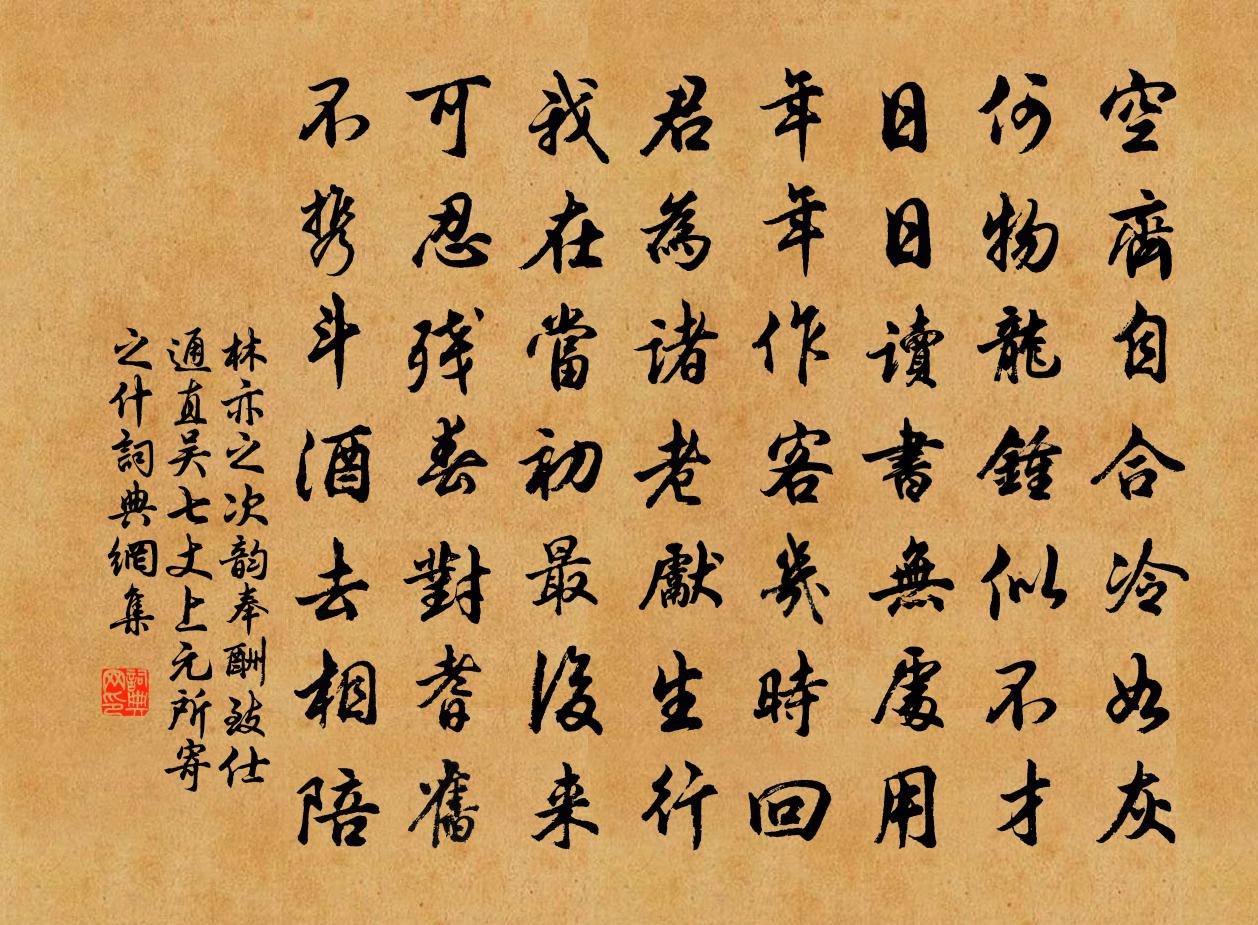 空齋自合冷如灰
何物龍鍾似不才
日日讀書無處用
年年作客幾時回
君為諸老獻生行
我在當初最後来
可忍残春對耆舊
不携斗酒去相陪
林亦之次韵奉酬致仕
通直吴七丈上元所寄
之什詞典網集
詞典
网印